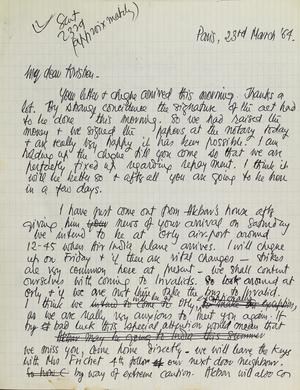 Sent
2324
approximately)
Paris, 23rd March '64.
My dear Krishen,
Your letter & cheque arrived this morning. Thanks a
lot. By strange coincidence the signature of the act had
to be done this morning. So we had raised the
money & we signed the papers at the notary today
& are really very happy it has been possible. I am
holding up the cheque till you come so that we are
perfectly fixed up regarding repayment. I think it
will be better so & after all you are going to be here
in a few days.
I have just come out from Akbar's house after
giving him news of your arrival on Saturday
We intend to be at Orly airport around
12-45 when Air India plane arrives. I will cheque
up on Friday & if there are vital changes - strikes
are very common here at present - we shall content
ourselves with coming to Invalids. So look around at
Orly & if we are not there take the bus to Invalid.
I think we might come to Orly
as we are really very anxious to meet you again. If
by bad luck this special attention would mean that
we miss you, come home directly - we will leave the keys
with Miss Frichet 4th floor our next door neighbour
by way of extreme caution. Akbar will also co